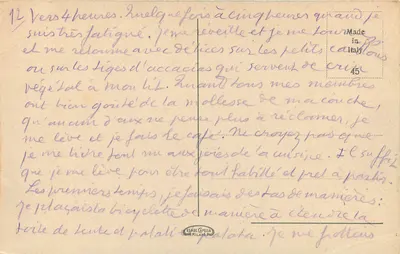 12 Vers 4 heures. Quelquefois à cinq heures quand je
suis très fatigué. Je me réveille et je me tourne
et me retourne avec délices sur les petits
ou sur les tiges d'accacias qui servent de crin
végétal à mon lit. Quand tous mes membres
ont bien goûté de la mollesse de ma couche,
qu'aucun d'eux ne pense plus à réclamer, je
me lève et je fais le café. Ne croyez pas que
je me livre tout nu aux joies de la cuisine. Il suffit
que je me lève pour être tout habillé et prêt à partir.
Les premiers temps, je faisais des tas de manières:
je plaçais la bicyclette de manière à étendre la
toile de tente et patati patata. Je me frottais
Made
in
45